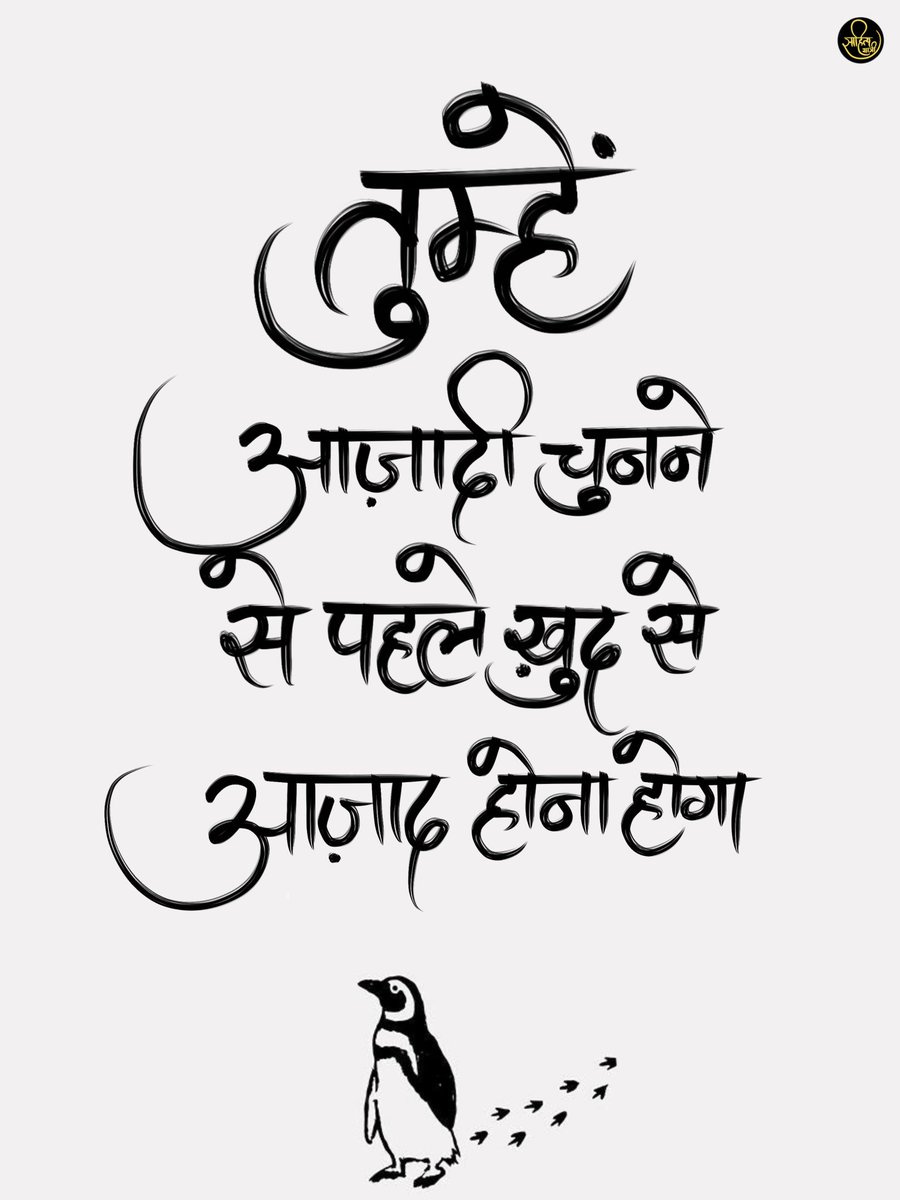 साहित्य
यात्री
तुम्हें
आज़ादी चुनने
से पहले ख़ुद से
आज़ाद होना होगा